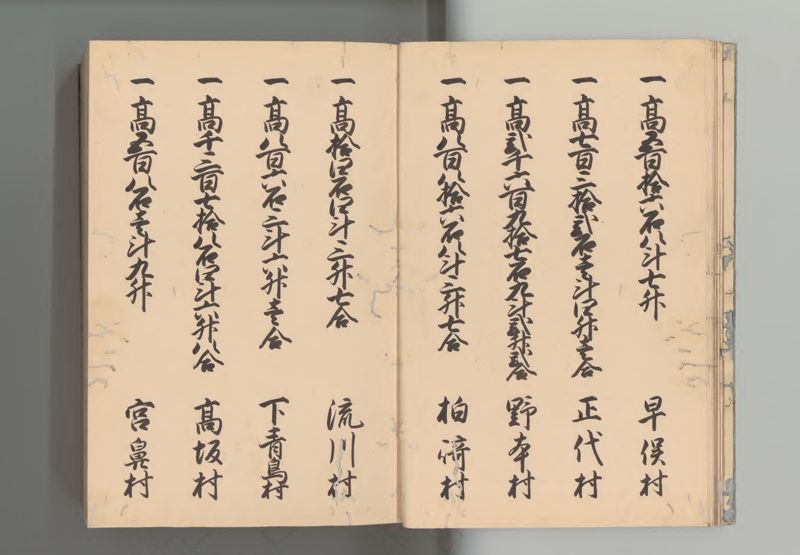 一高五百拾六石八斗七升 早俣村
一高七百三拾弐石壱斗四升壱合 正代村
一高弐千六百九拾七石九斗弐升弐合 野本村
一高八百八拾六石八斗三升七合 柏﨑村
一高拾四石四斗三升七合 流川村
一高八百六石三斗六升壱合 下青鳥村
一高千三百七拾八石四斗六升八合 高坂村
一高五百八石壱斗九升 宮鼻村